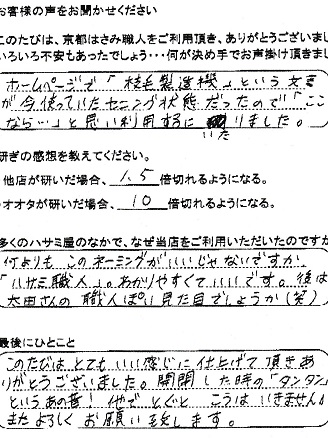 お客様の声をお聞かせください
このたびは、京都はさみ職人をご利用頂き、ありがとうございまし
いろいろ不安もあったでしょう・・・何が決め手でお声掛け頂きまし
ホームページで「枝毛製造機」という文言
が今使っていたセニング状態だったので「ここ
なら…」と思い利用するに
いたりました。
研ぎの感想を教えてください。
他店が研いだ場合、1.5倍切れるようになる。
オオタが研いだ場合、10倍切れるようになる。
多くのハサミ屋のなかで、なぜ当店をご利用いただいたのですか
何よりも このネーミングがいいじゃないですか、
「ハサミ職人」。わかりやすくていいです。後は
太田さんの職人ぽい見た目でしょうか(笑)
最後にひとこと
このたびは とても いい感じに 仕上げて 頂きあ
りがとうございました。開閉した時の「タンタン」
というあの音! 他で とぐと こうは いきません。
また よろしく お願い 致します。